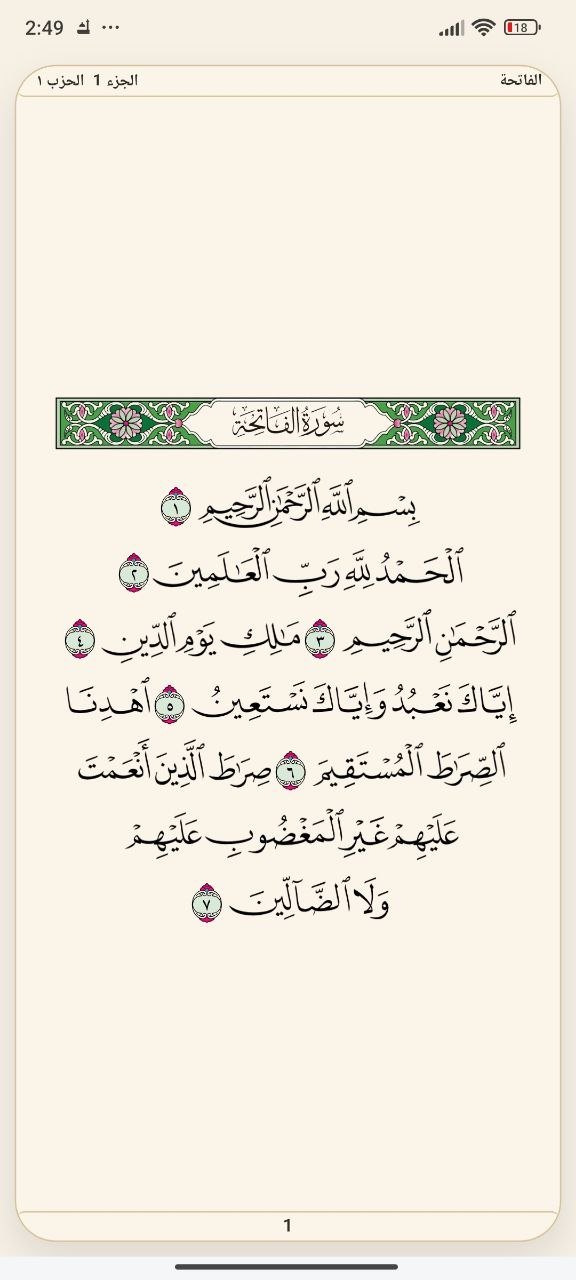 2:49 ك ... 18
الفاتحة الجزء 1 الحزب ١
سُورَةُ الفَاتِحَةِ
بِسْمِ ٱللَّهِ ٱلرَّحْمَٰنِ ٱلرَّحِيمِ ١
ٱلْحَمْدُ لِلَّهِ رَبِّ ٱلْعَٰلَمِينَ ٢
ٱلرَّحْمَٰنِ ٱلرَّحِيمِ ٣ مَٰلِكِ يَوْمِ ٱلدِّينِ ٤
إِيَّاكَ نَعْبُدُ وَإِيَّاكَ نَسْتَعِينُ ٥ ٱهْدِنَا
ٱلصِّرَٰطَ ٱلْمُسْتَقِيمَ ٦ صِرَٰطَ ٱلَّذِينَ أَنْعَمْتَ
عَلَيْهِمْ غَيْرِ ٱلْمَغْضُوبِ عَلَيْهِمْ
وَلَا ٱلضَّآلِّينَ ٧
1